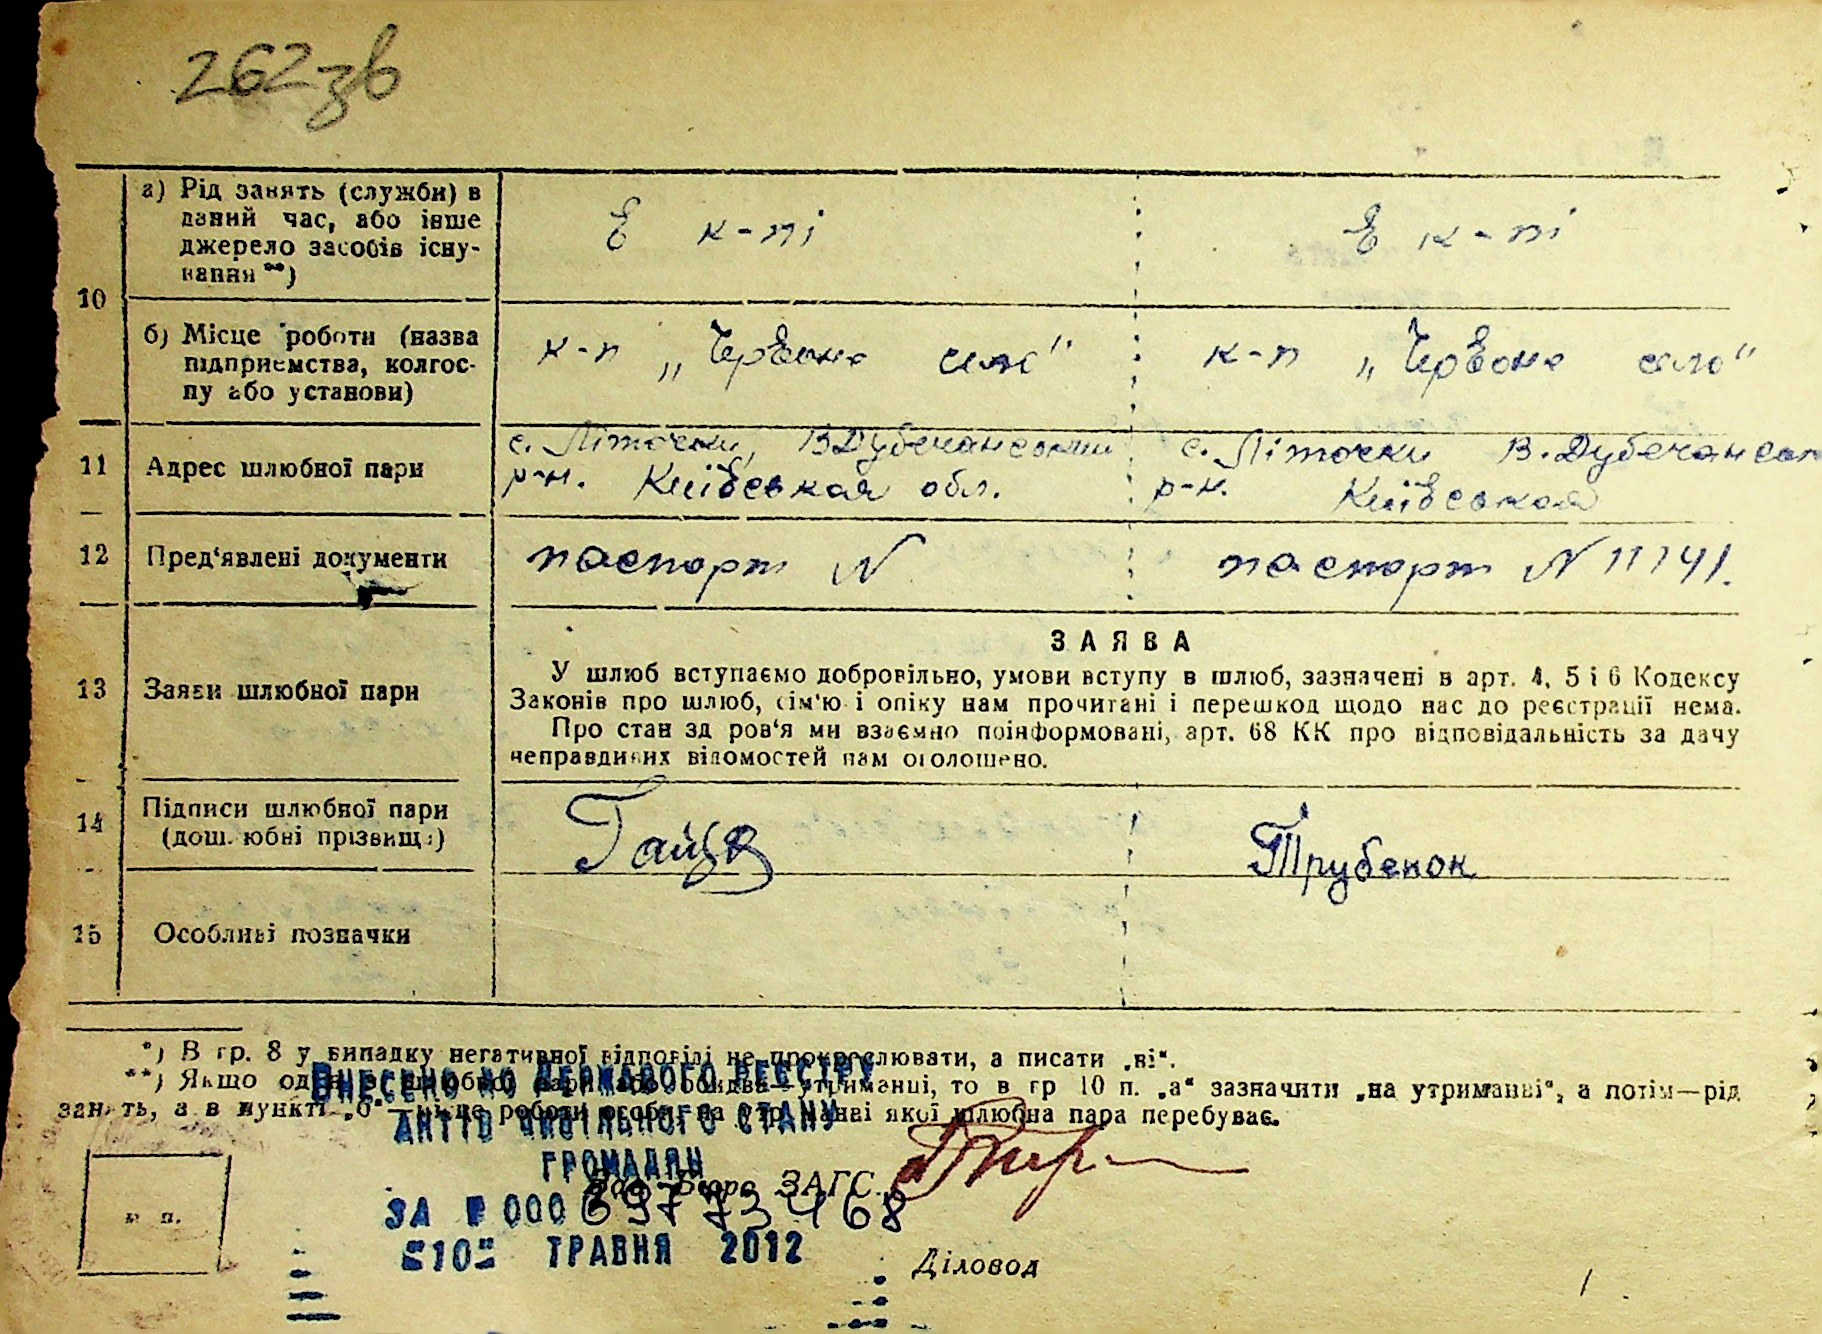 262зв
а) Рід занять (служби) в
даний час, або інше
джерело засобів існу-
вання **)
В к-пі
В к-пі
10
б) Місце роботи (назва
підприємства, колгос-
пу або установи)
к-п „Червоне село“
к-п „Червоне село“
11
Адрес шлюбної пари
с. Літочки, В Дубечанський
р-н. Київська обл.
с. Літочки В. Дубечанськ
р-н. Київська
12
Пред‘явлені документи
паспорт N
паспорт N 11741.
ЗАЯВА
13
Заяви шлюбної пари
У шлюб вступаємо добровільно, умови вступу в шлюб, зазначені в арт. 4, 5 і 6 Кодексу
Законів про шлюб, сім'ю і опіку нам прочитані і перешкод щодо нас до реєстрації нема.
Про стан здоров‘я ми взаємно поінформовані, арт. 68 КК про відповідальність за дачу
неправдивих відомостей нам оголошено.
14
Підписи шлюбної пари
(дошлюбні прізвища)
Трубенок
15
Особливі позначки
*) В гр. 8 у випадку негативної відповіді не прокреслювати, а писати „ні“.
**) Якщо один з шлюбної пари або обидва—утриманці, то в гр 10 п. „а“ зазначити „на утриманні“, а потім—рід
занять, а в пункті „б“—місце роботи особи, на утриманні якої шлюбна пара перебуває.
Внесено до Державного реєстру
актів цивільного стану
громадян
за № 00069773468
„10“ травня 2012
Зав. Бюро ЗАГС
м п.
Діловод